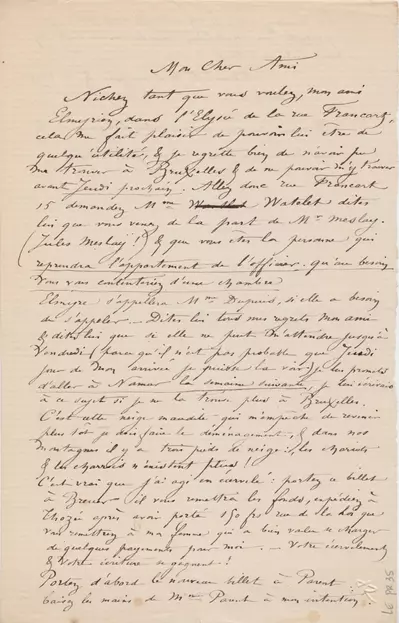 Mon Cher Ami
Nichez tant que vous voulez, mon ami
Elmerien, dans l'Elysée de la rue Francart,
cela me fait plaisir de pouvoir lui être de
quelqu'utilité, & je regrette bien de n'avoir pu
me trouver à Bruxelles & de ne pouvoir m'y trouver
avant Jeudi prochain. Allez donc rue Francart
15 demandez Mme Watelet dites
lui que vous venez de la part de Mr Meslay.
(Jules Meslay!) & que vous êtes la personne qui
reprendra l'appartement de l'officier. qu'au besoin
vous vous contenteriez d'une chambre
Elmyre s'appellera Mme Dupuis, si elle a besoin
de s'appeler – Dites lui tous mes regrets mon ami
& dites lui que si elle ne peut m'attendre jusqu'à
Vendredi (parce qu'il n'est pas probable que Jeudi
jour de mon arrivée je puisse la voir) je lui promets
d'aller à Namur la semaine suivante, je lui écrirai
à ce sujet si je ne la trouve plus à Bruxelles.
C'est cette neige maudite qui m'empêche de revenir
plus tôt je dois faire le déménagement, & dans nos
montagnes il y a trois pieds de neige, les chariots
& les charrois n'existent plus!
C'est vrai que j'ai agi en écervelé: portez ce billet
à il vous remettra les fonds, expédiez à
Thozée après avoir porté 150 frs rue de la
vous remettrez à ma femme qui a bien voulu se charger
de quelques payements pour moi. – Votre écervelement
& votre écriture se gagnent!
Portez d'abord le nouveau billet à Parent.
baisez les mains de Mme Parent à mon intention.
LE PR 35